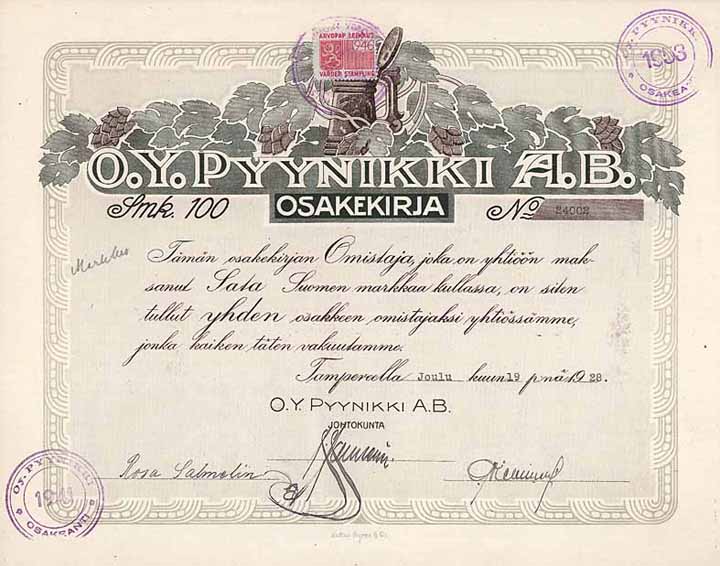 ARVOPAP. LEIMAUS
1946
VÄRDEP. STÄMPLING
OY. PYYNIKKI
OSAKEA
O.Y. PYYNIKKI A.B.
Smk. 100
OSAKEKIRJA
No 24002
Tämän osakekirjan Omistaja, joka on yhtiöön mak-
sanut Sata Suomen markkaa kullassa, on siten
tullut yhden osakkeen omistajaksi yhtiössämme,
jonka kaiken täten vakuutamme.
Tampereella Joulu kuun 19 p:nä 1928.
O.Y. PYYNIKKI A.B.
JOHTOKUNTA
Rosa Salmelin
OY. PYYNIKKI
1941
OSAKEANTI